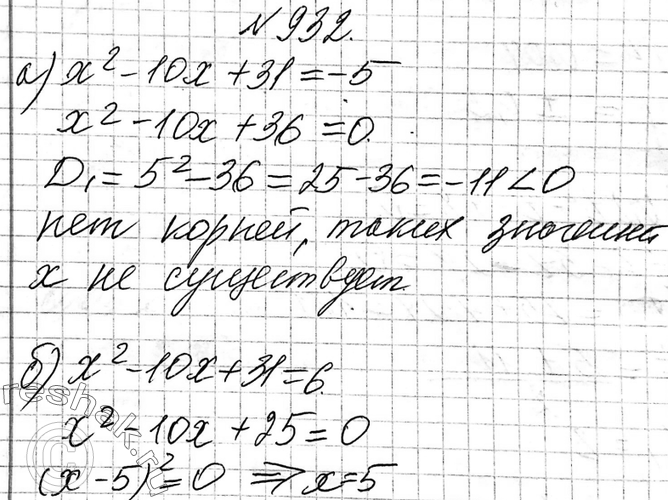 № 932.
а) x² - 10x + 31 = -5
x² - 10x + 36 = 0.
D₁ = 5² - 36 = 25 - 36 = -11 < 0
нет корней, таких значений
x не существует.
б) x² - 10x + 31 = 6.
x² - 10x + 25 = 0
(x - 5)² = 0 ⇒ x = 5
reshak.ru